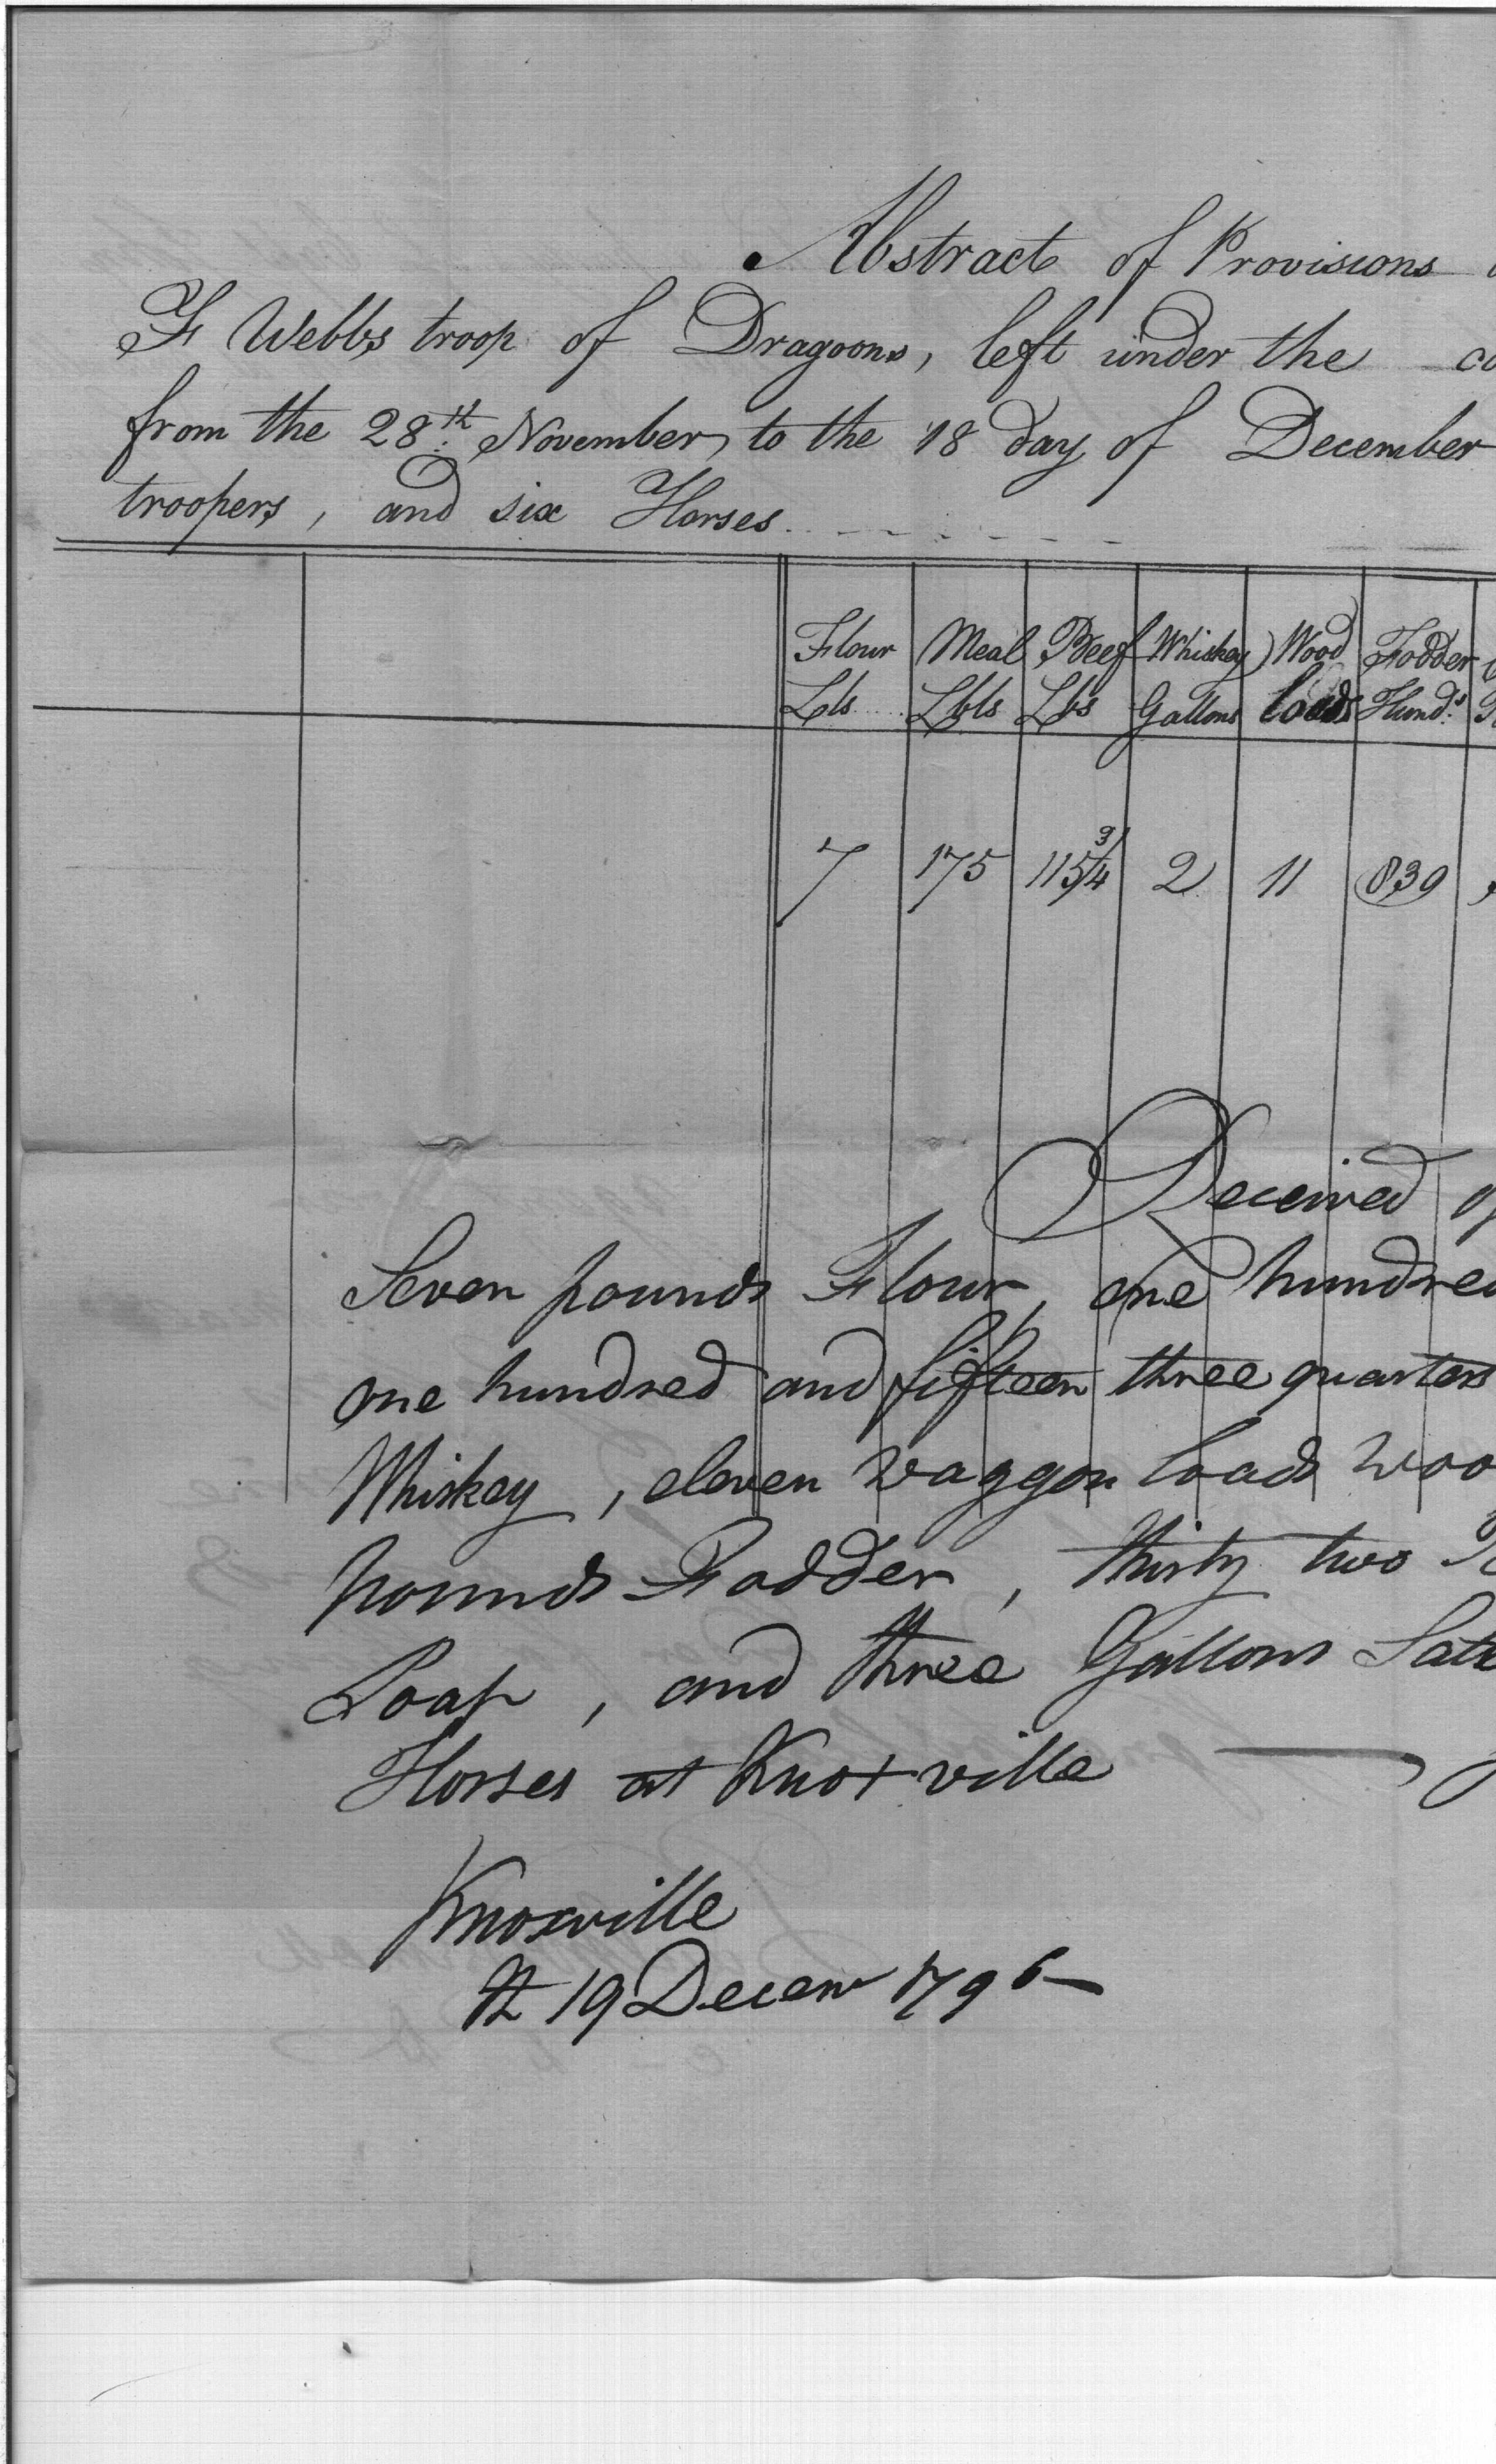 Abstract of Provisions
F Webbs troop of Dragoons, left under the
from the 28th November, to the 18 day of December
troopers, and six Horses
Flour Meal Beef Whiskey Wood Fodder
Lbs Lbls Lbs Gallons loads Hund.s
7 175 115 3/4 2 11 839
Received of
Seven pounds Flour, one hundred
one hundred and fifteen three quarters
Whiskey, eleven waggon loads woo
pounds Fodder, thirty two
Soap, and three Gallons
Horses at Knoxville
Knoxville
19 Decem 1796